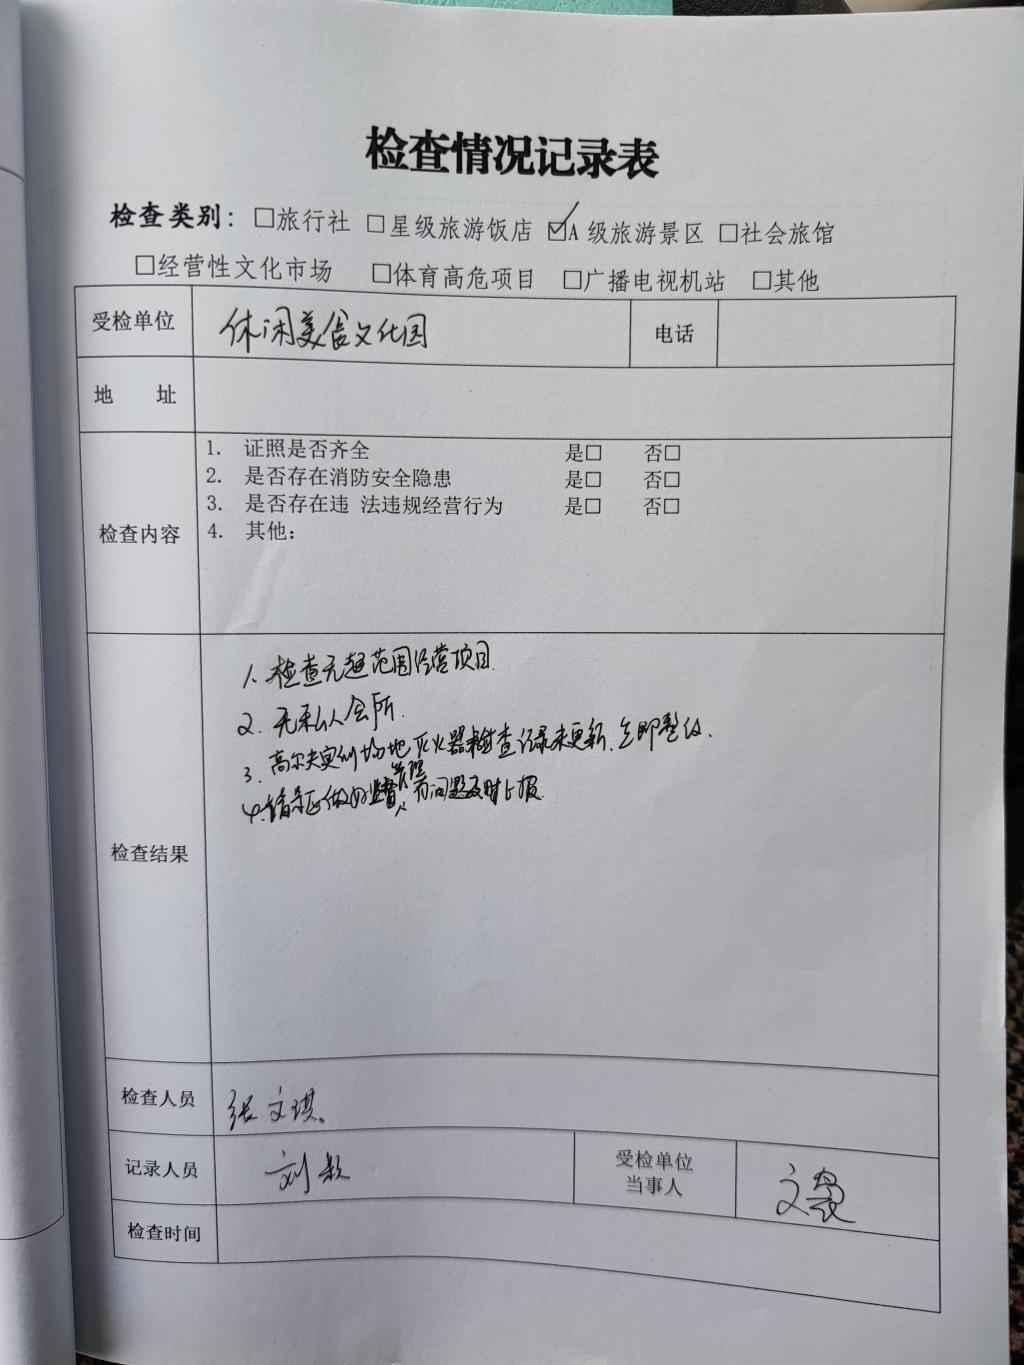 检查情况记录表
检查类别：□旅行社 □星级旅游饭店 ☑A 级旅游景区 □社会旅馆
□经营性文化市场 □体育高危项目 □广播电视机站 □其他
受检单位 休闲美食文化园 电话
地 址
检查内容
1. 证照是否齐全 是□ 否□
2. 是否存在消防安全隐患 是□ 否□
3. 是否存在违 法违规经营行为 是□ 否□
4. 其他：
检查结果
1. 检查无超范围经营项目.
2. 无私人会所.
3. 高尔夫实训场地灭火器检查记录未更新、立即整改.
4. 做好监督管理 有问题及时上报.
检查人员 张文琪.
记录人员 刘
受检单位
当事人 文
检查时间